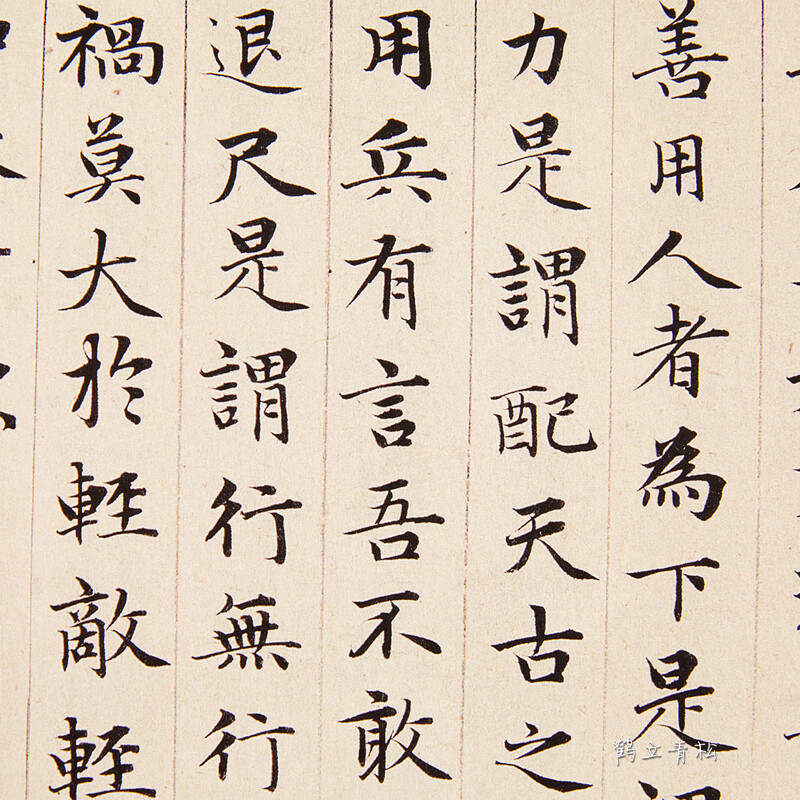 善用人者為下是
力是謂配天古之
用兵有言吾不敢
退尺是謂行無行
禍莫大於輕敵輕
鶴立青松